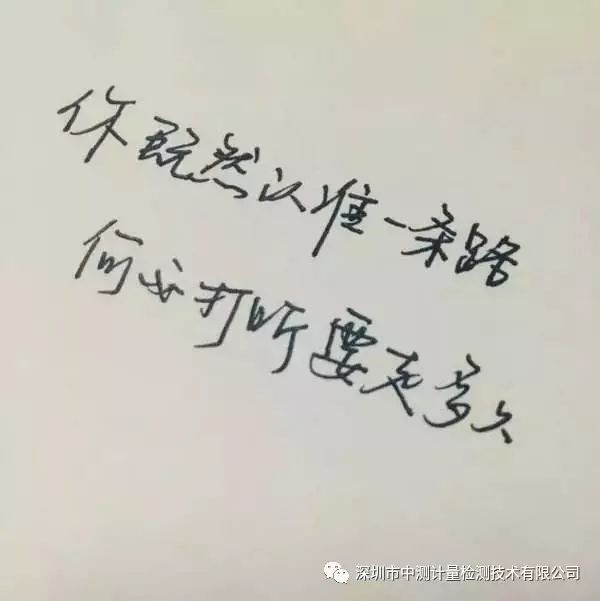 你既然认准一条路
何必打听要走多久
深圳市中测计量检测技术有限公司